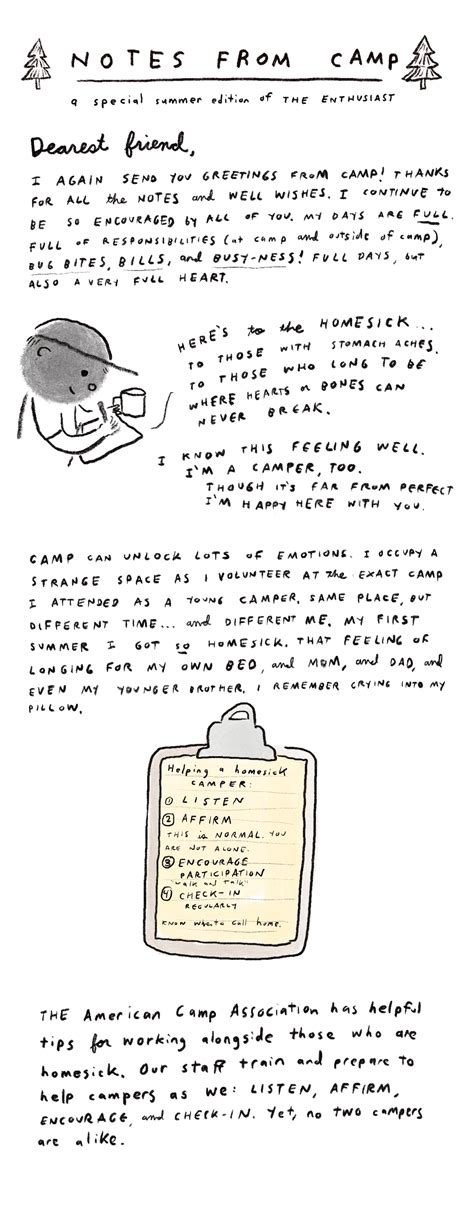 NOTES FROM CAMP
a special summer edition of THE ENTHUSIAST
Dearest friend,
I AGAIN SEND YOU GREETINGS FROM CAMP! THANKS
FOR ALL the NOTES and WELL WISHES. I CONTINUE TO
BE SO ENCOURAGED by ALL OF YOU. MY DAYS ARE FULL.
FULL OF RESPONSIBILITIES (at camp and outside of camp),
BUG BITES, BILLS, and BUSY-NESS! FULL DAYS, but
ALSO A VERY FULL HEART.
HERE'S to the HOMESICK...
TO THOSE WITH STOMACH ACHES.
TO THOSE WHO LONG TO BE
WHERE HEARTS or BONES CAN
NEVER BREAK.
I KNOW THIS FEELING WELL.
I'M A CAMPER, TOO.
THOUGH IT'S FAR FROM PERFECT
I'M HAPPY HERE WITH YOU.
CAMP CAN UNLOCK LOTS OF EMOTIONS. I OCCUPY A
STRANGE SPACE AS I VOLUNTEER AT the EXACT CAMP
I ATTENDED AS A YOUNG CAMPER. SAME PLACE, BUT
DIFFERENT TIME... and DIFFERENT ME. MY FIRST
SUMMER I GOT so HOMESICK. THAT FEELING OF
LONGING FOR MY OWN BED, and MOM, and DAD, and
EVEN MY YOUNGER BROTHER. I REMEMBER CRYING INTO MY
PILLOW.
Helping a homesick
CAMPER:
① LISTEN
② AFFIRM
THIS is NORMAL. YOU
ARE NOT ALONE.
③ ENCOURAGE
PARTICIPATION
"walk and talk"
④ CHECK-IN
REGULARLY
KNOW when to call home.
THE American Camp Association has helpful
tips for working alongside those who are
homesick. Our staff train and prepare to
help campers as we: LISTEN, AFFIRM,
ENCOURAGE, and CHECK-IN. Yet, no two campers
are alike.